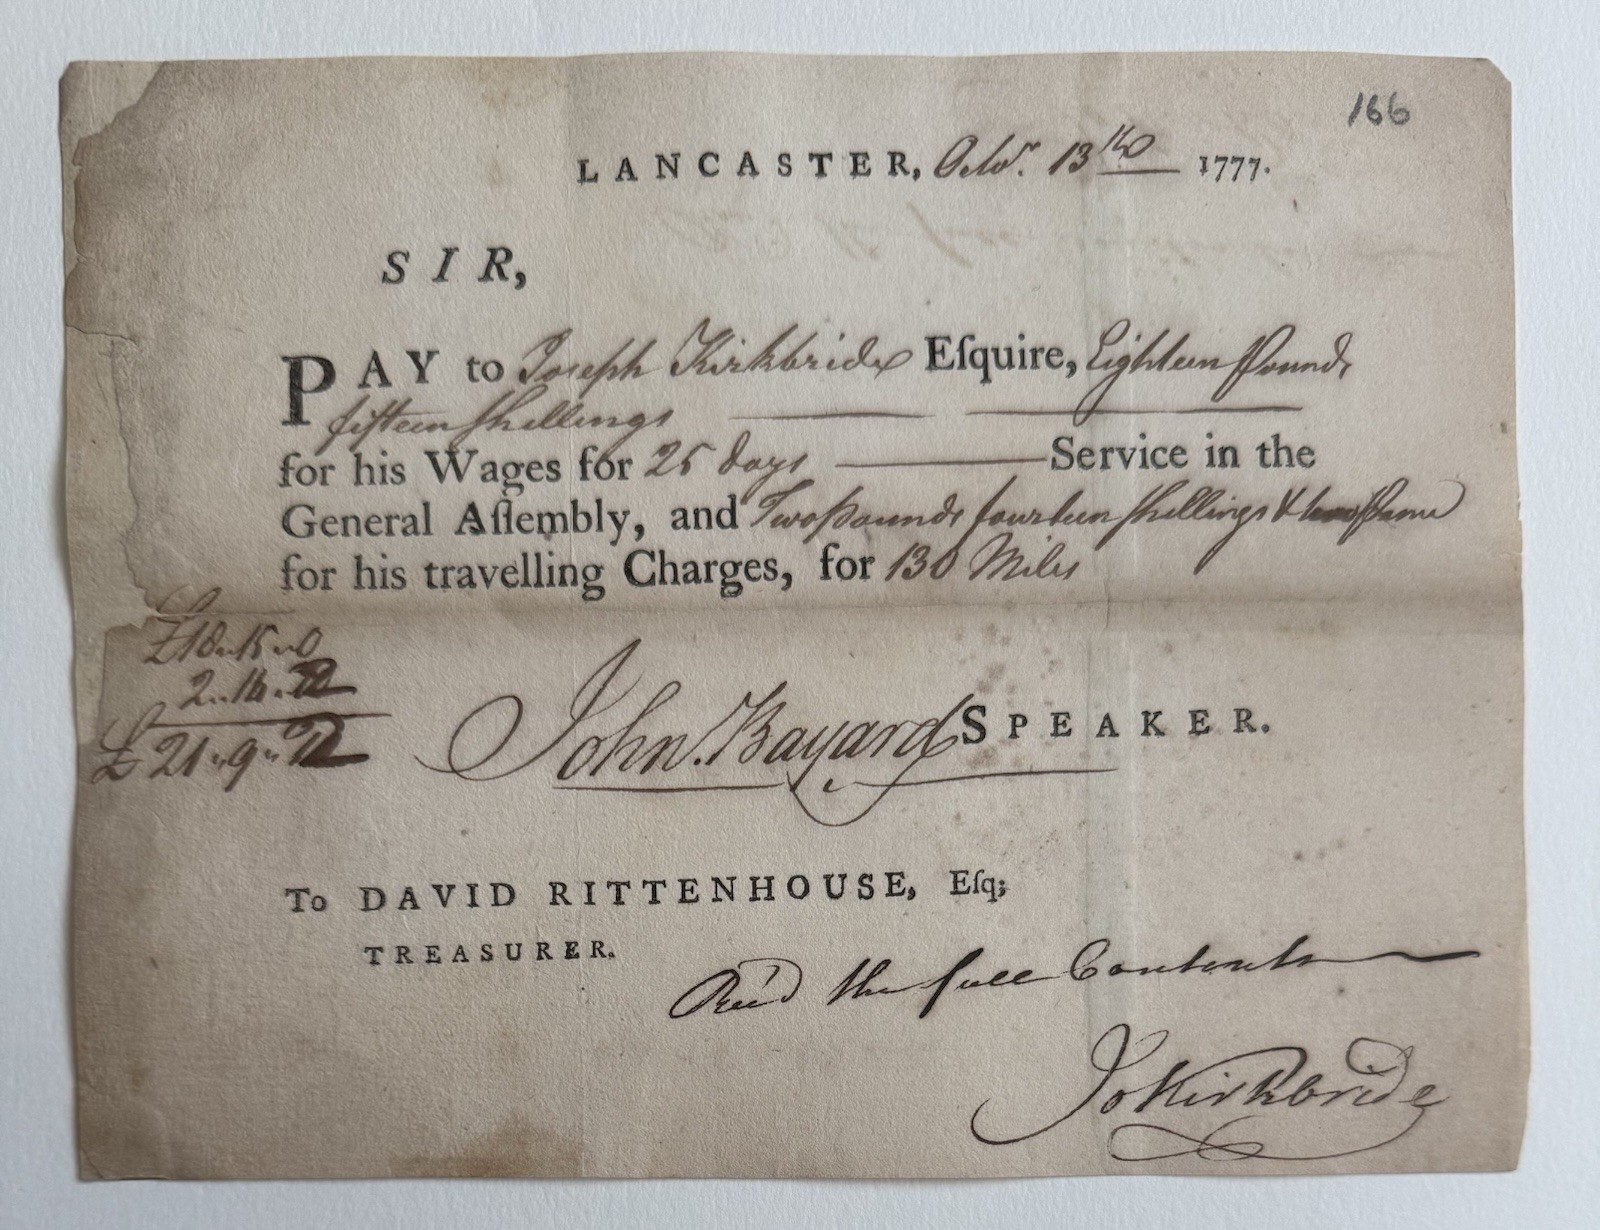 166
LANCASTER, Octor. 13th 1777.
SIR,
PAY to Joseph Kirkbride Eſquire, Eighteen Pounds
fifteen ſhillings
for his Wages for 25 days Service in the
General Aſſembly, and Two pounds fourteen ſhillings & two Pence
for his travelling Charges, for 130 Miles
£18..15..0
2..14..2
£21..9..2
John Bayard SPEAKER.
To DAVID RITTENHOUSE, Eſq;
TREASURER.
Rec'd the full Contents
Jo Kirkbride